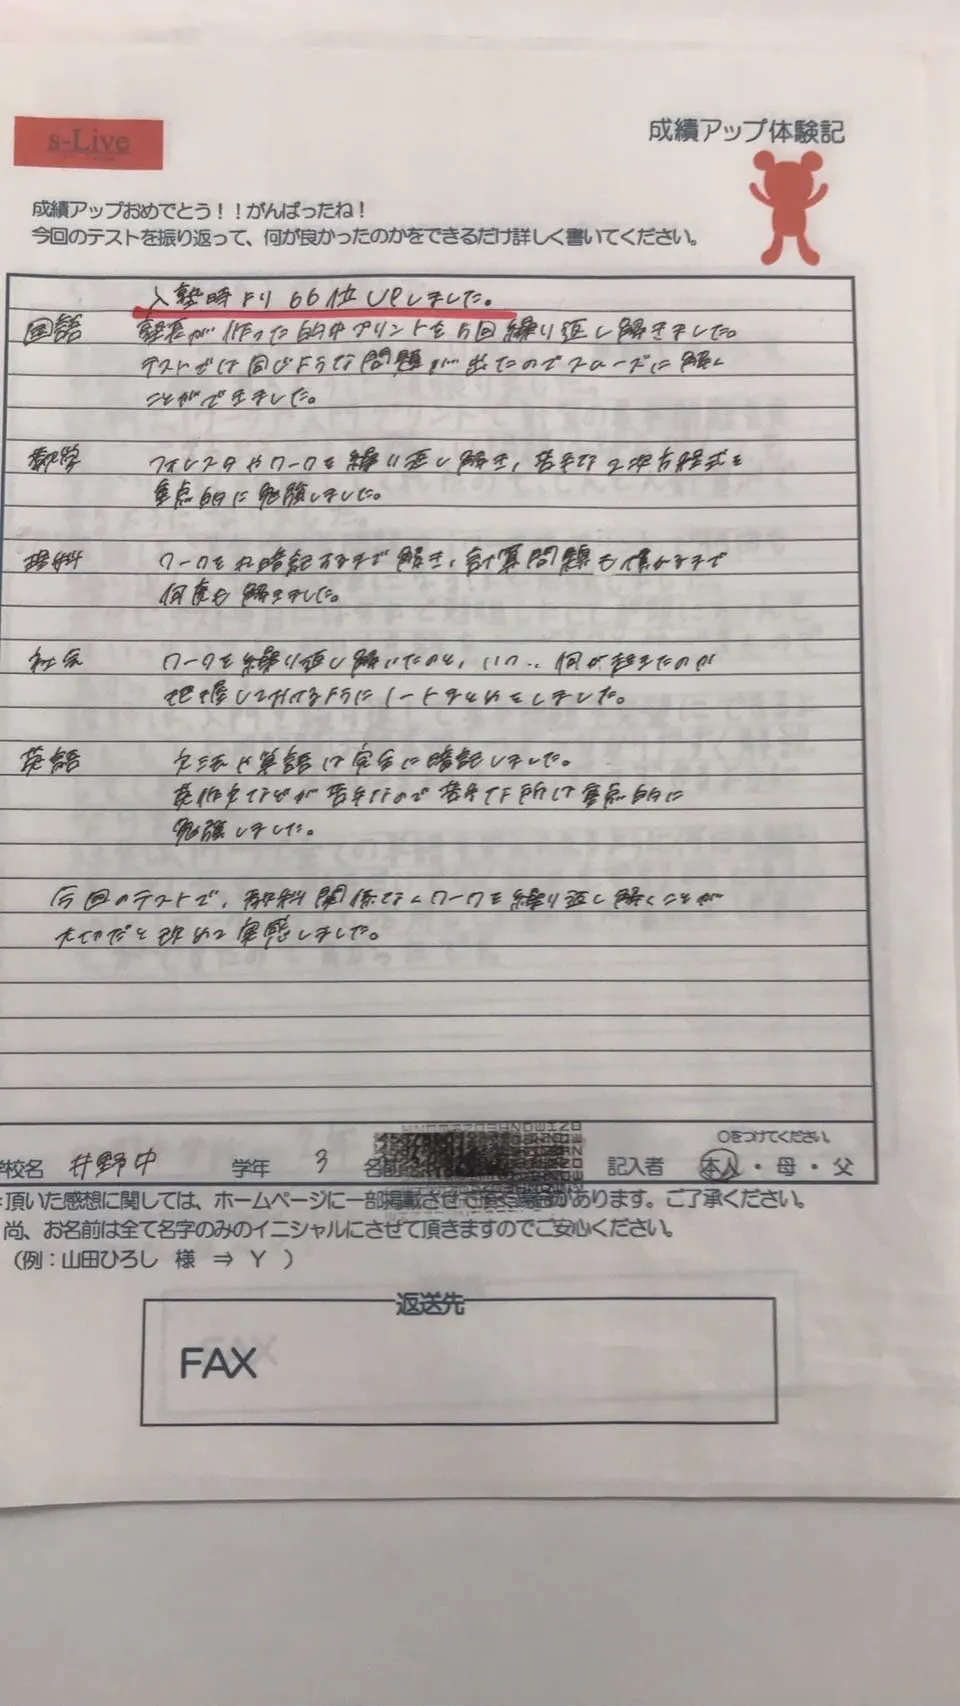 s-Live
成績アップ体験記
成績アップおめでとう！！がんばったね！
今回のテストを振り返って、何が良かったのかをできるだけ詳しく書いてください。
入塾時より66位UPしました。
国語 塾長が作った的中プリントを5回繰り返し解きました。
テストでは同じような問題が出たのでスムーズに解く
ことができました。
数学 フォレスタやワークを繰り返し解き、苦手な2次方程式を
重点的に勉強しました。
理科 ワークを丸暗記するまで解き、計算問題も慣れるまで
何度も解きました。
社会 ワークを繰り返し解いたのと、いつ、何が起きたのか
把握しておけるようにノートまとめをしました。
英語 文法や単語は完全に暗記しました。
英作文などが苦手なので苦手な所は重点的に
勉強しました。
今回のテストで、教科関係なくワークを繰り返し解くことが
大切だと改めて実感しました。
○をつけてください。
学校名 井野中 学年 3 名前 記入者 本人・母・父
頂いた感想に関しては、ホームページに一部掲載させて頂く場合があります。ご了承ください。
尚、お名前は全て名字のみのイニシャルにさせて頂きますのでご安心ください。
（例：山田ひろし 様 ⇒ Y ）
返送先
FAX